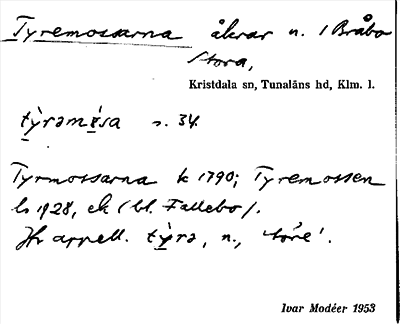 Tyremossarna åkrar n. / Bråbo
Stora,
Kristdala sn, Tunaläns hd, Klm. l.
tỳrəmɵsa s. 34.
Tyrmossarna k 1790; Tyremossen
ls 1928, ek (bl. Fallebo).
Jfr appell. tỳrə, n., 'töre'.
Ivar Modéer 1953